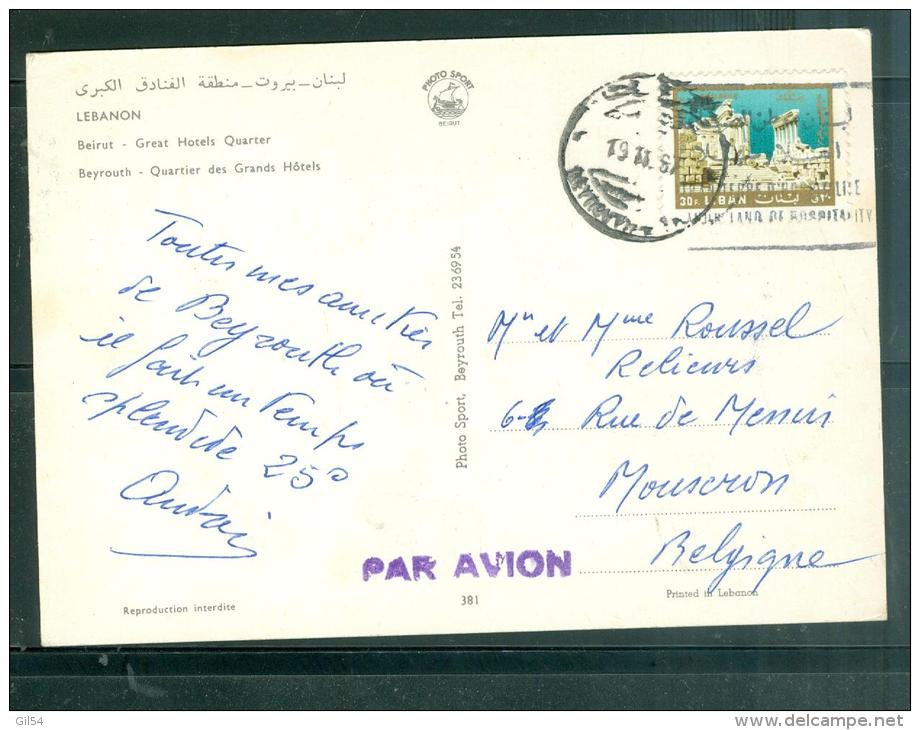 لبنان - بيروت - منطقة الفنادق الكبرى
LEBANON
Beirut - Great Hotels Quarter
Beyrouth - Quartier des Grands Hôtels
PHOTO SPORT
BEIRUT
30 P. LIBAN لبنان
LAND OF HOSPITALITY
Toutes mes amitiés
de Beyrouth où
il fait un temps
splendide 25°
Photo Sport, Beyrouth Tel. 236954
Mr et Mme Roussel
Relieurs
Rue de Menin
Mouscron
Belgique
PAR AVION
Reproduction interdite
381
Printed in Lebanon
Gil54